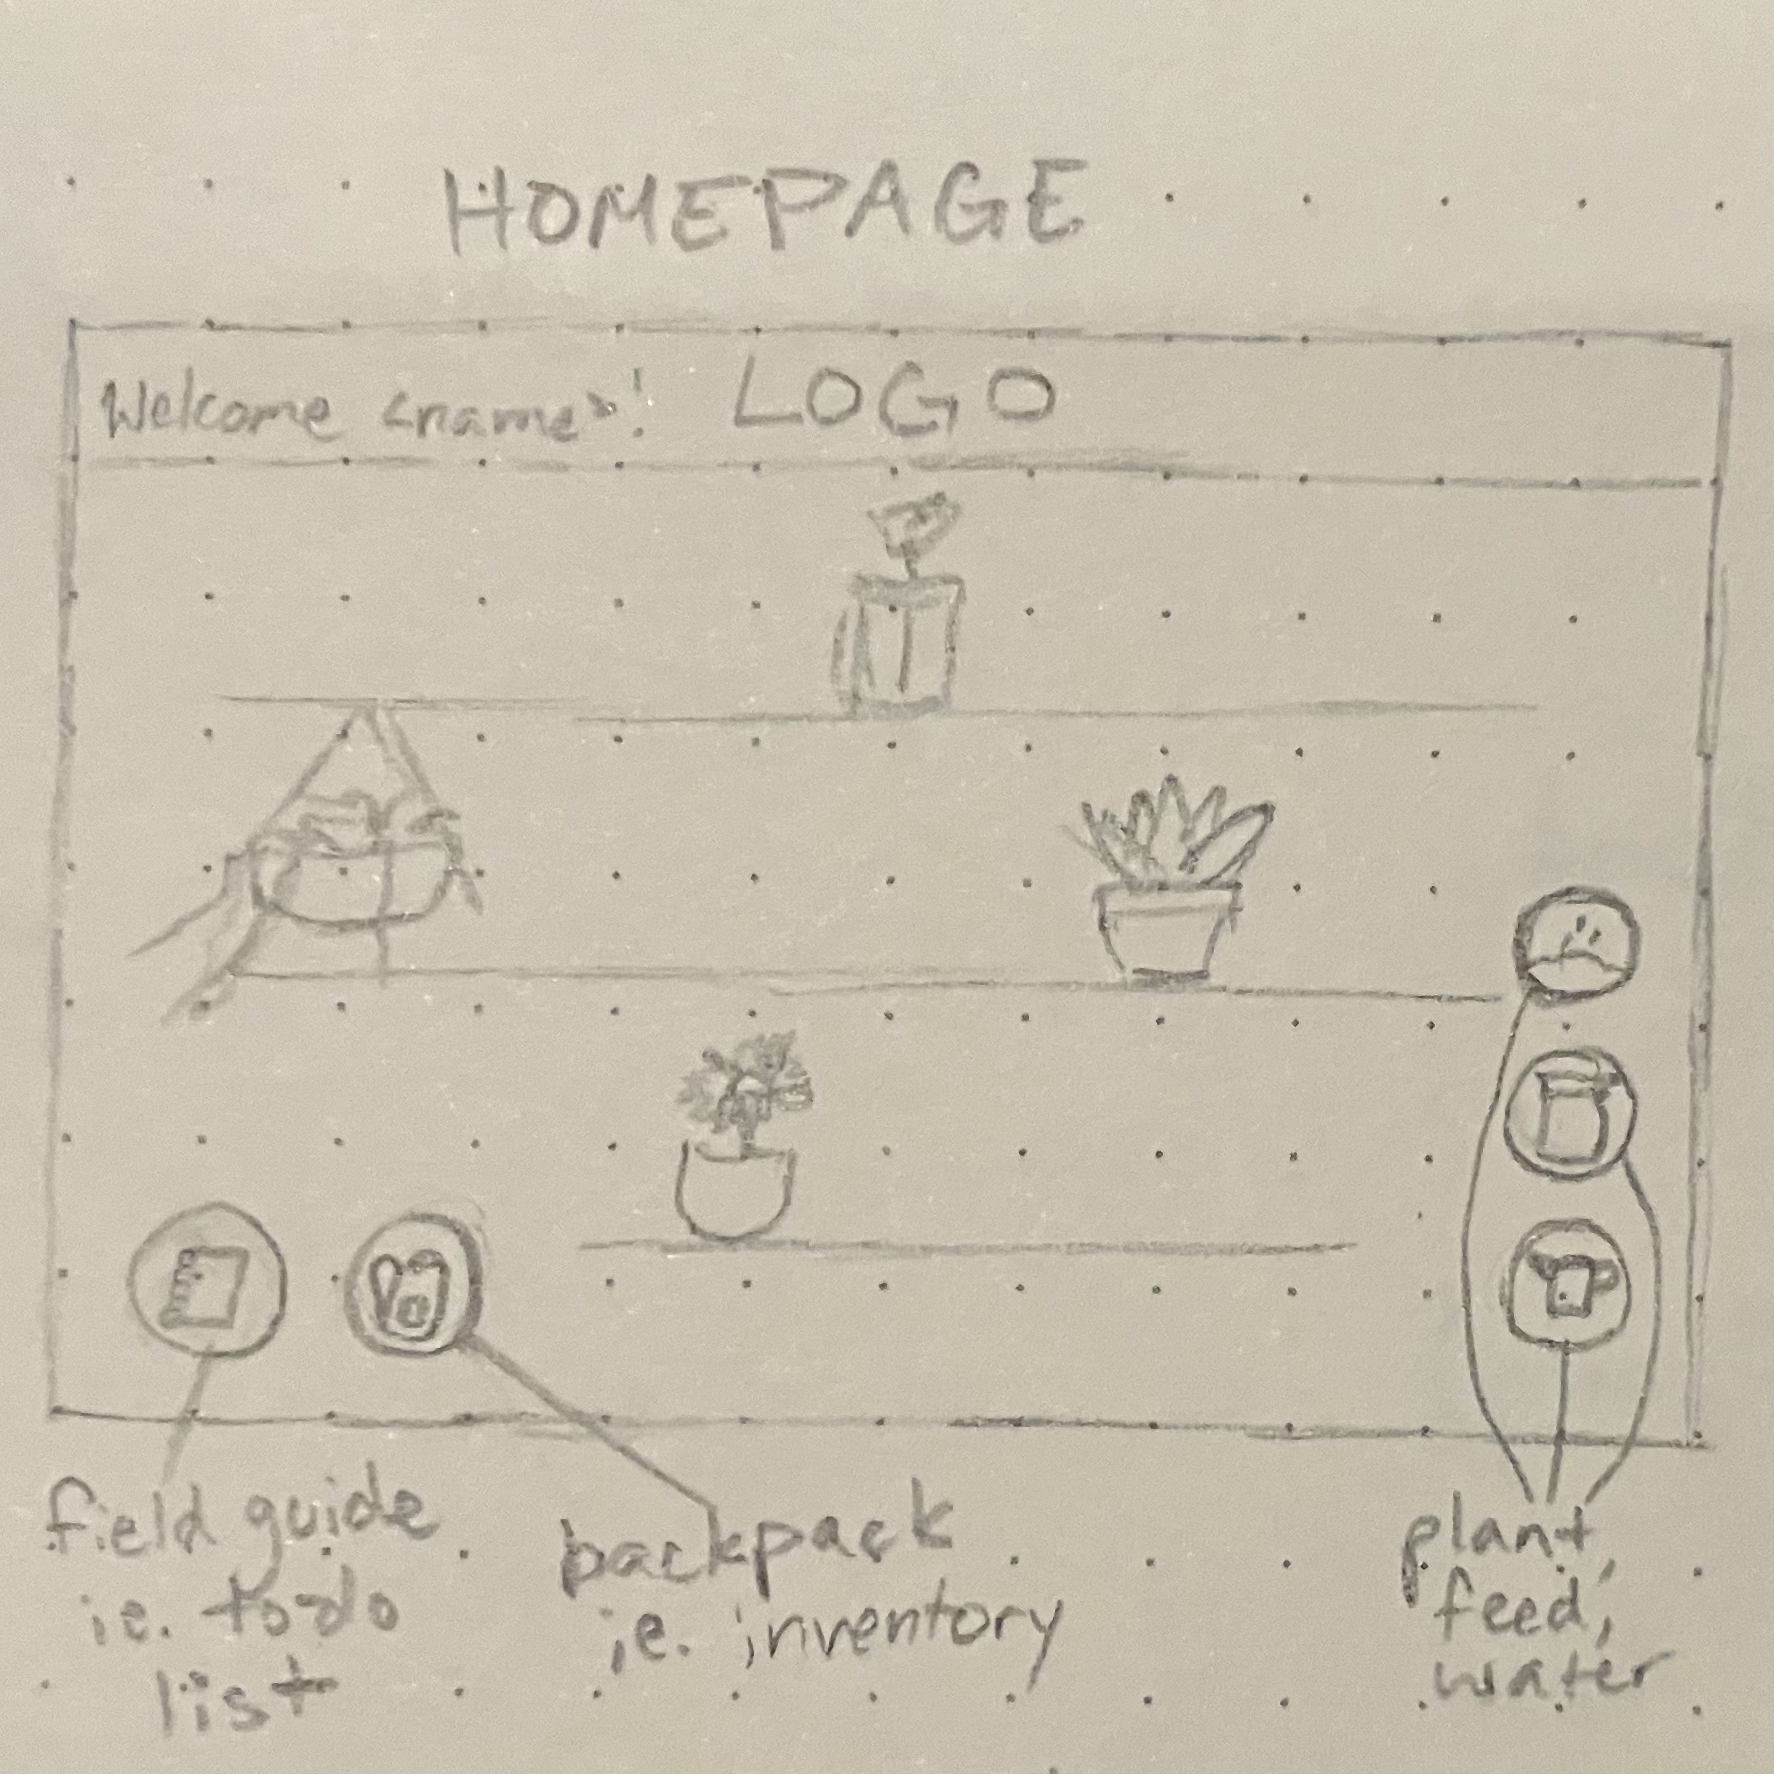 HOMEPAGE
Welcome <name>! LOGO
field guide
ie. todo
list
backpack
ie. inventory
plant,
feed,
water